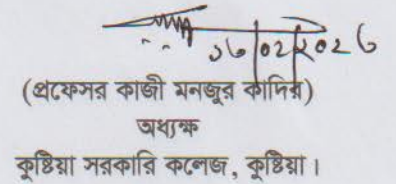 ১৬/০২/২০২৬
(প্রফেসর কাজী মনজুর কাদির)
অধ্যক্ষ
কুষ্টিয়া সরকারি কলেজ, কুষ্টিয়া।